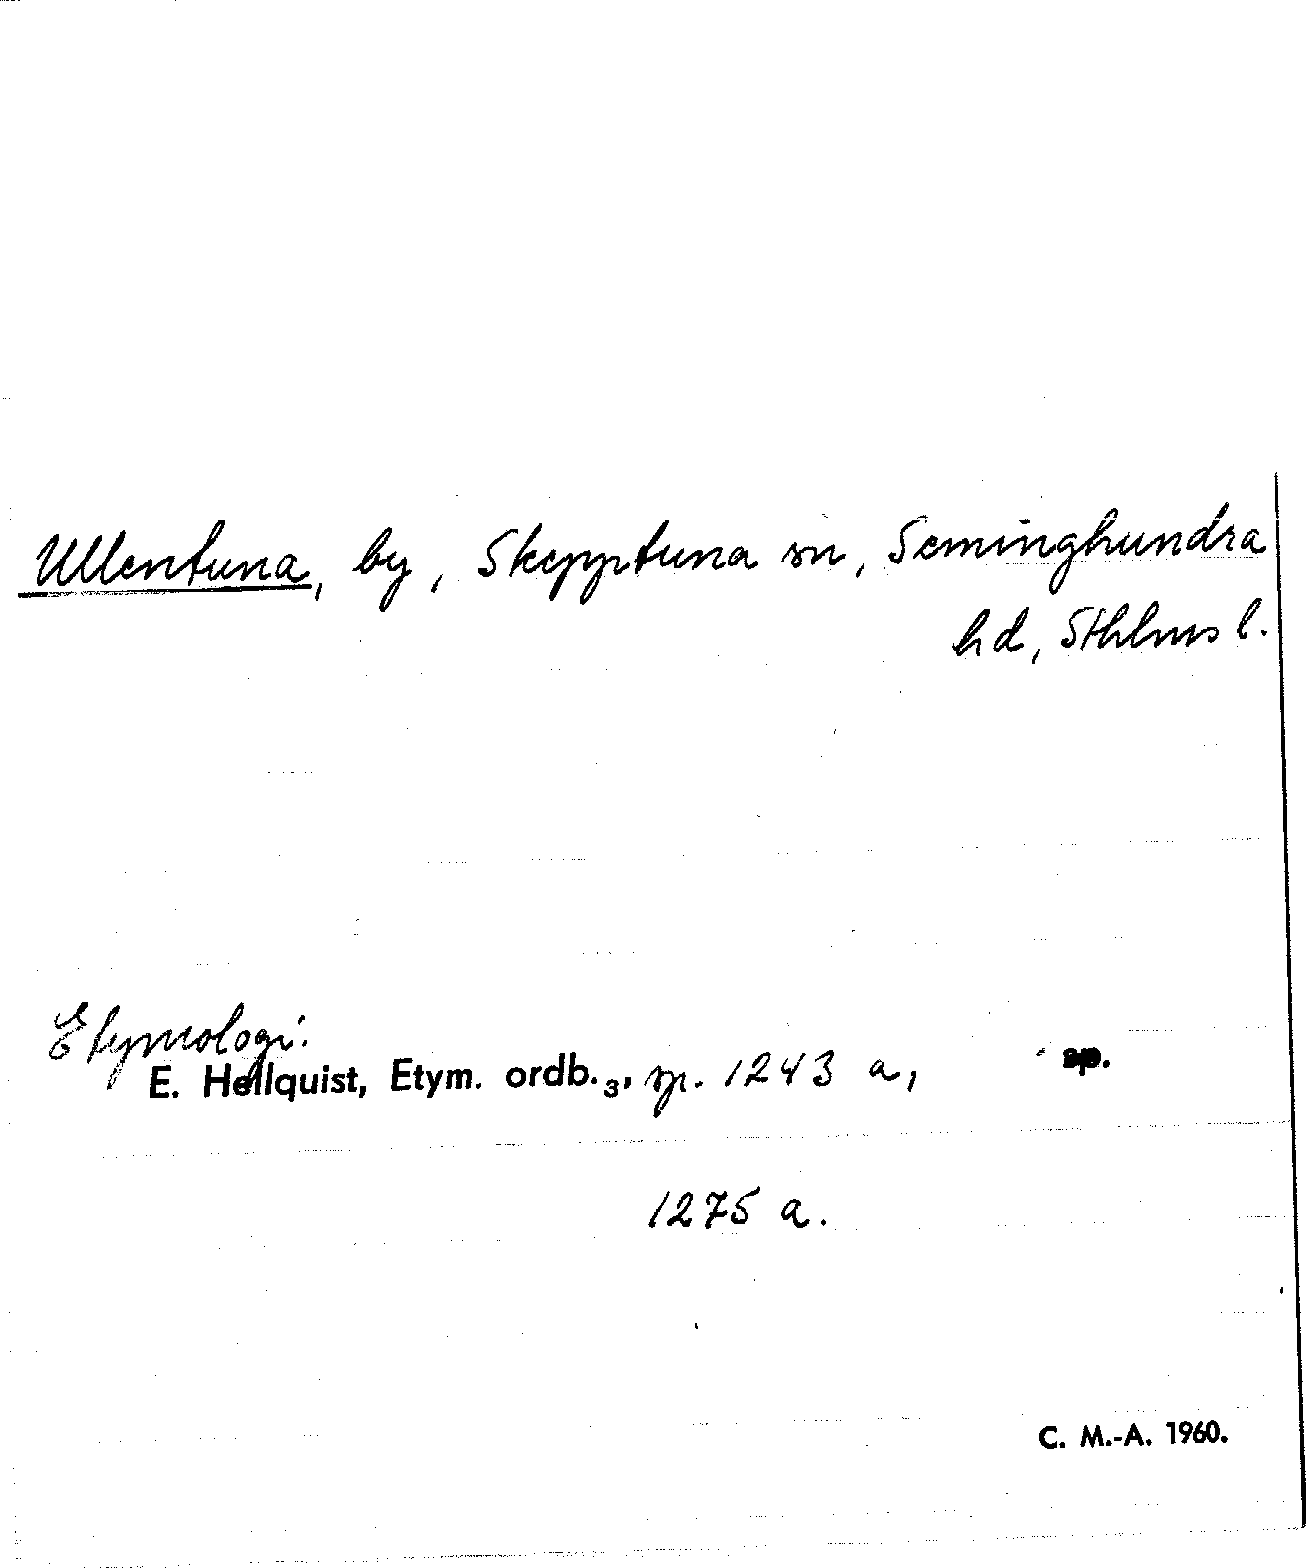 Ullentuna, by, Skepptuna sn, Seminghundra
hd, Sthlms l.
Etymologi:
E. Hellquist, Etym. ordb.₃, sp. 1243 a, sp.
1275 a.
C. M.-A. 1960.